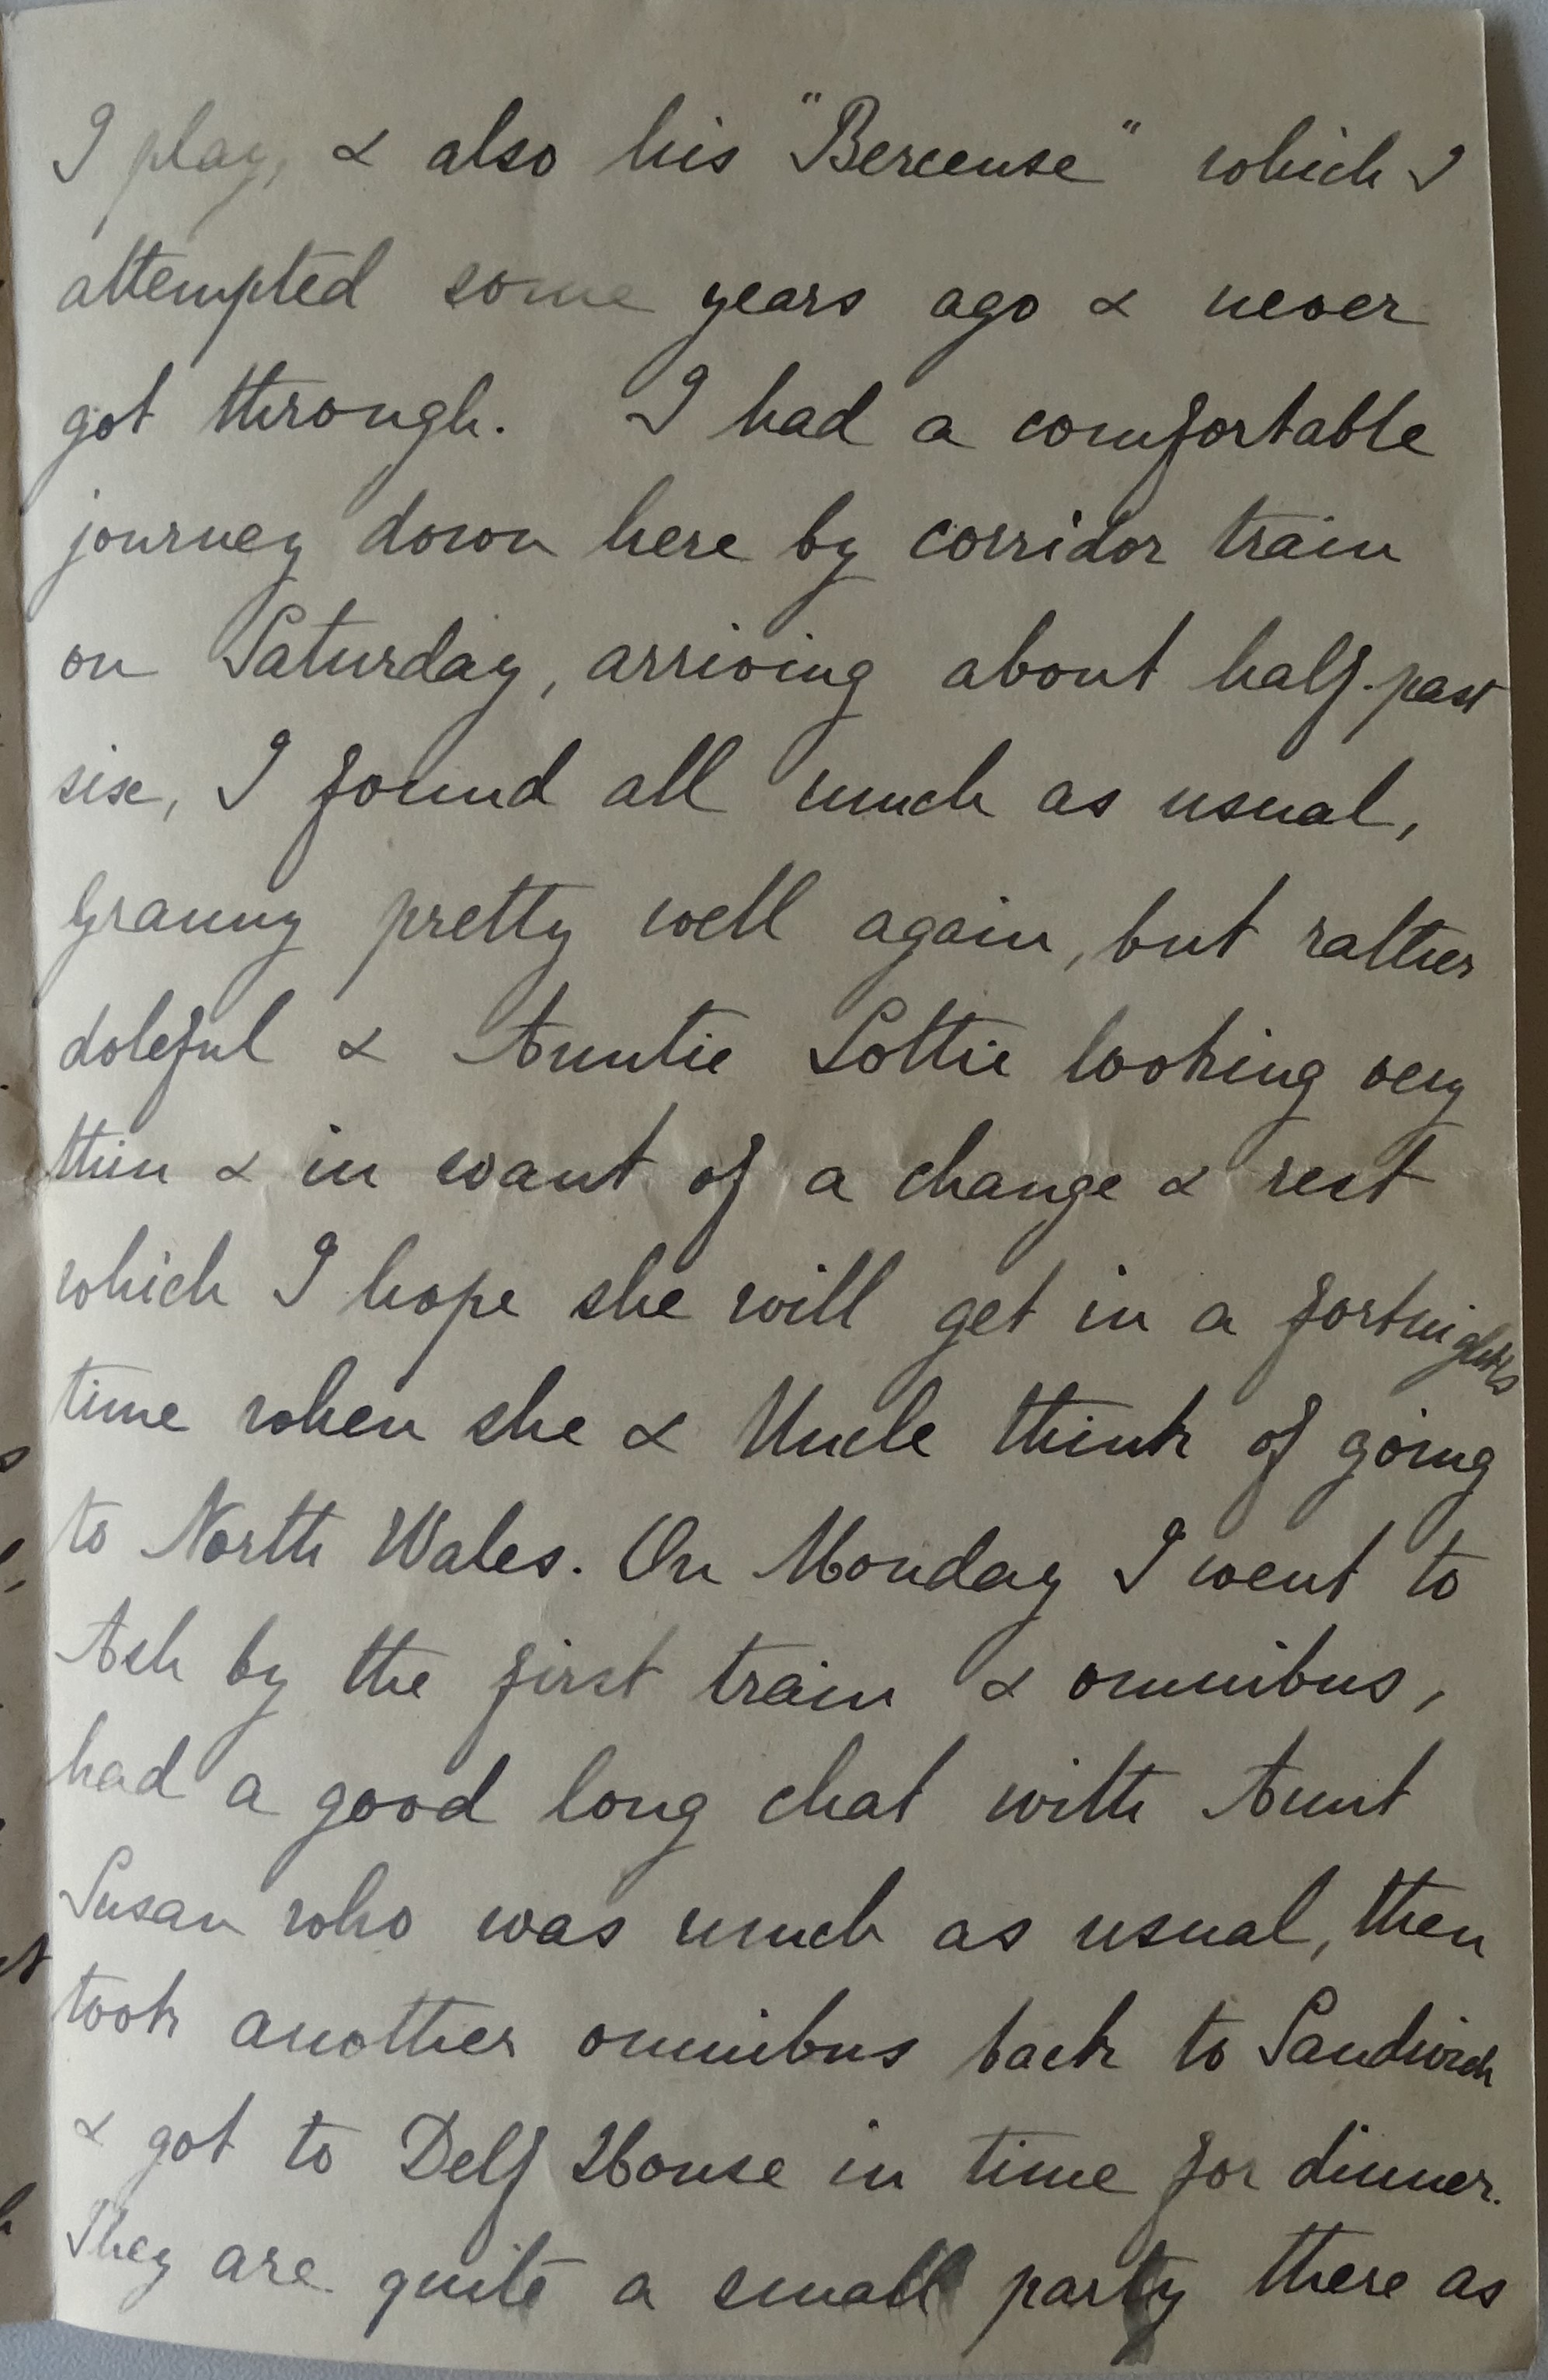 I play, & also his "Berceuse" which I
attempted some years ago & never
got through. I had a comfortable
journey down here by corridor train
on Saturday, arriving about half-past
six, I found all much as usual,
Granny pretty well again, but rather
doleful & Auntie Lottie looking very
thin & in want of a change & rest
which I hope she will get in a fortnight's
time when she & Uncle think of going
to North Wales. On Monday I went to
Ash by the first train & omnibus,
had a good long chat with Aunt
Susan who was much as usual, then
took another omnibus back to Sandwich
& got to Delf House in time for dinner.
They are quite a small party there as